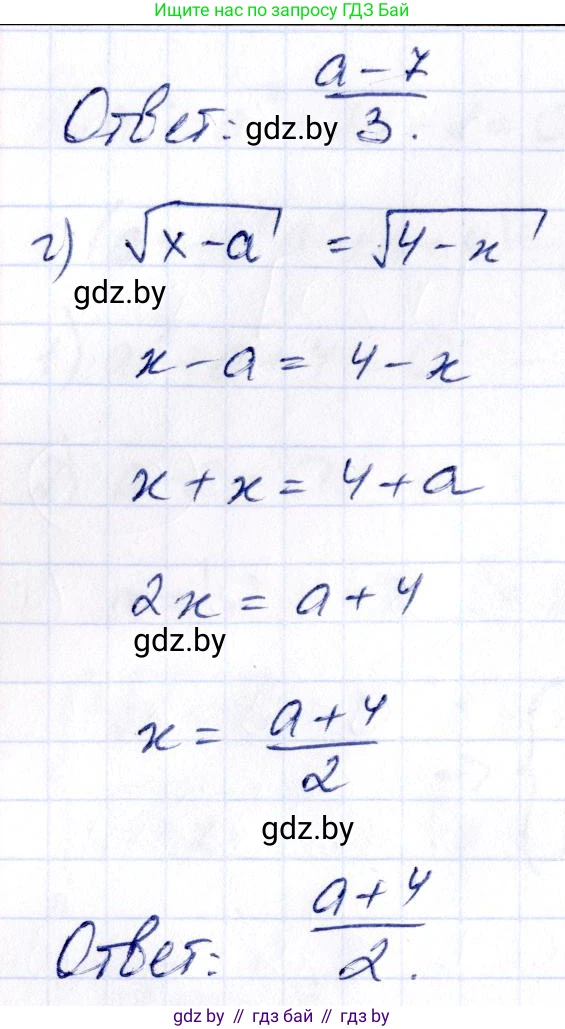 Ищите нас по запросу ГДЗ Бай
Ответ: (a-7)/3.
gdz.by
г) √(x-a) = √(4-x)
gdz.by
x-a = 4-x
x+x = 4+a
2x = a+4
gdz.by
x = (a+4)/2
gdz.by
Ответ: (a+4)/2.
gdz by // гдз бай // гдз by